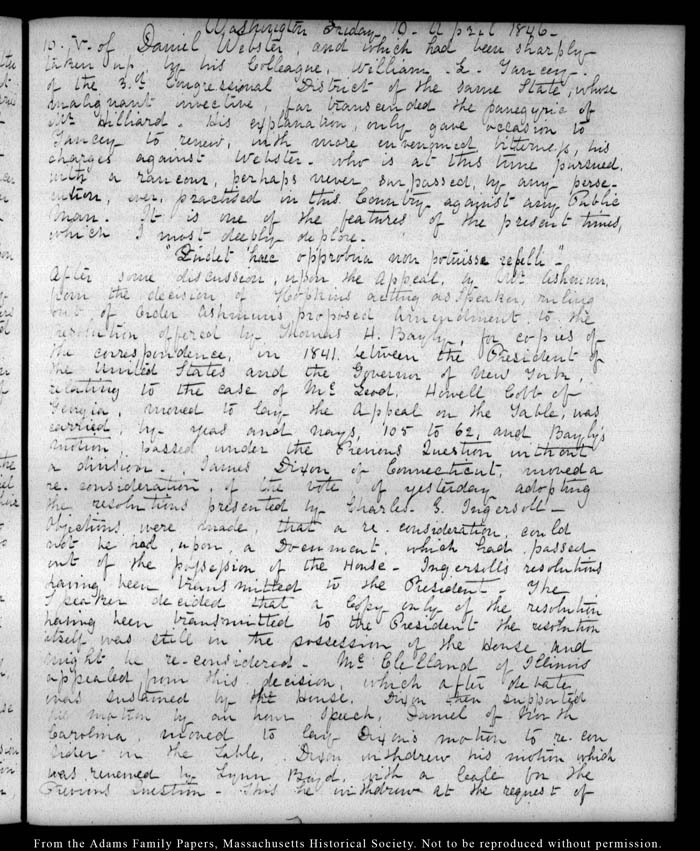 Washington Friday 10. April 1846.
10. V. of Daniel Webster, and which had been sharply
taken up by his Colleague, William L. Yancey
of the 3.d Congressional District of the same State, whose
malignant invective, far transcended the panegyric of
Mr Hilliard. His explanation, only gave occasion to
Yancey to renew, with more envenomed bitterness, his
charges against Webster. who is at this time pursued,
with a rancour, perhaps never surpassed, by any perse-
cution, ever, practised in this Country against any Public
man. It is one of the features of the present times,
which I most deeply deplore.
"Pudet haec opprobria non potuisse refelli"
After some discussion, upon the Appeal, by Mr Ashmun,
from the decision of Hopkins acting as Speaker, ruling
out of Order Ashmun's proposed Amendment to the
resolution offered by Thomas H. Bayly, for copies of
the correspondence, in 1841. between the President of
the United States and the Governor of New York,
relating to the case of Mc Leod. Howell Cobb of
Georgia, moved to lay the Appeal on the Table, was
carried, by yeas and nays, 105 to 62, and Bayly's
motion, passed under the Previous Question without
a division. James Dixon of Connecticut, moved a
re-consideration, of the vote of yesterday adopting
the resolutions presented by Charles J. Ingersoll—
Objections were made, that a re-consideration, could
not be had, upon, a Document, which had passed
out of the possession of the House— Ingersoll's resolutions
having been transmitted to the President. The
Speaker decided that a Copy only of the resolution
having been transmitted to the President the resolution
itself was still in the possession of the House and
might be re-considered. Mc Clelland of Illinois
appealed from this decision, which after debate
was sustained by the House. Dixon then supported
his motion by an hour speech, Daniel of North
Carolina, moved to lay Dixon's motion to re-con
sider on the Table. Dixon withdrew his motion which
was renewed by Lynn Boyd, with a call for the
Previous Question— This he withdrew at the request of
From the Adams Family Papers, Massachusetts Historical Society. Not to be reproduced without permission.